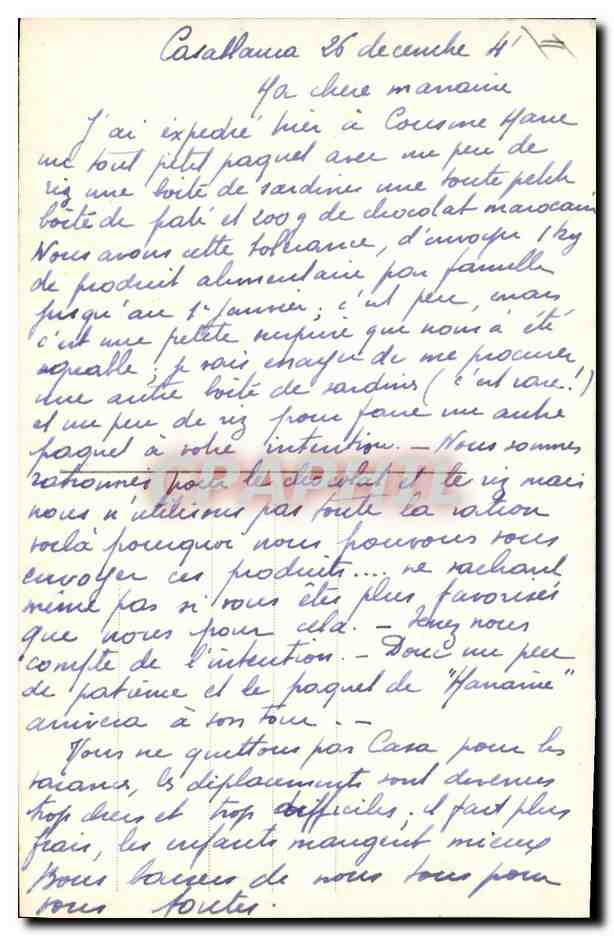 Casablanca 26 decembre 41
Ma chere marraine
J'ai expedié hier à Cousine Marie
un tout petit paquet avec un peu de
riz une boite de sardines une toute petite
boite de paté et 200g de chocolat marocain
Nous avons cette tolerance, d'envoyer 1 kg
de produit alimentaire par famille
jusqu'au 1er Janvier ; c'est peu, mais
c'est une petite surprise qui nous a été
agreable ; je vais essayer de me procurer
une autre boite de sardines (c'est rare !)
et un peu de riz pour faire un autre
paquet à votre intention. — Nous sommes
rationnés pour le chocolat et le riz mais
nous n'utilisons pas toute la ration
voilà pourquoi nous pouvons vous
envoyer ces produits.... ne sachant
même pas si vous êtes plus favorisés
que nous pour cela. — Tenez nous
compte de l'intention. — Donc un peu
de patience et le paquet de "Marraine"
arrivera à son tour. —
Nous ne quittons pas Casa pour les
vacances, les déplacements sont devenus
trop chers et trop difficiles ; il fait plus
frais, les enfants mangent mieux
Bons baisers de nous tous pour
vous toutes.
CPAPHIL